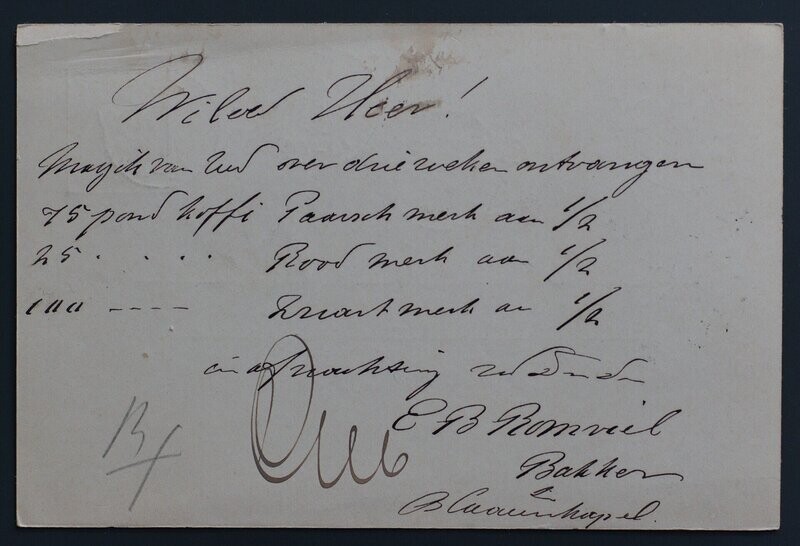 WelEd Heer!
Mag ik van UEd over drie weken ontvangen
75 pond koffi Paarsch merk aan 1/2
25 . . . . Rood merk aan 1/2
100 ---- Zwart merk an 1/2
in afwachting
E B Romviel
Bakker
Blaauwkapel.